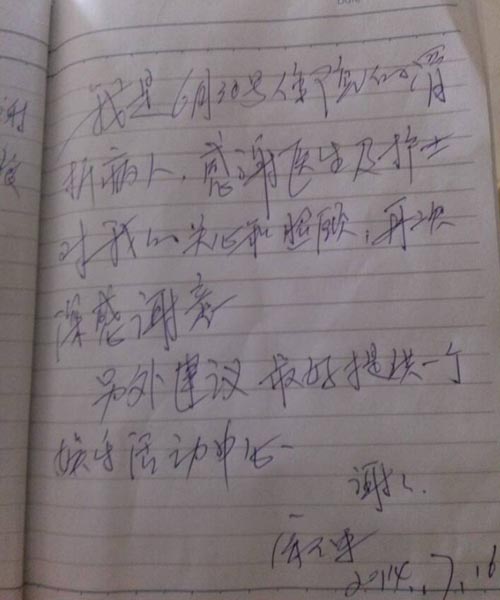 Date
谢
我是6月30号住院的骨
折病人,感谢医生及护士
对我的关心和照顾,再次
深感谢意
另外建议最好提供一个
娱乐活动中心
谢谢.
2014.7.16